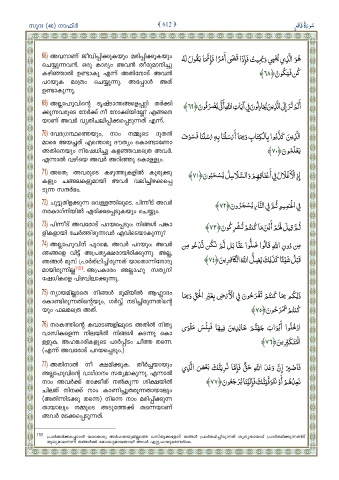 സൂറ (40) ഗാഫിർ
﴿ 612 ﴾
سورة غافر
68) അവനാണ് ജീവിപ്പിക്കുകയും മരിപ്പിക്കുകയും
ചെയ്യുന്നവൻ. ഒരു കാര്യം അവൻ തീരുമാനിച്ചു
കഴിഞ്ഞാൽ ഉണ്ടാകൂ എന്ന് അതിനോട് അവൻ
പറയുക മാത്രം ചെയ്യുന്നു. അപ്പോൾ അത്
ഉണ്ടാകുന്നു.
هُوَ الَّذِي يُحْيِي وَيُمِيتُ فَإِذَا قَضَىٰ أَمْرًا فَإِنَّمَا يَقُولُ لَهُ
كُن فَيَكُونُ ﴿٦٨﴾
69) അല്ലാഹുവിന്റെ ദൃഷ്ടാന്തങ്ങളെപ്പറ്റി തർക്കി
ക്കുന്നവരുടെ നേർക്ക് നീ നോക്കിയില്ലേ? എങ്ങനെ
യാണ് അവർ വ്യതിചലിപ്പിക്കപ്പെടുന്നത് എന്ന്.
أَلَمْ تَرَ إِلَى الَّذِينَ يُجَادِلُونَ فِي آيَاتِ اللَّهِ أَنَّىٰ يُصْرَفُونَ ﴿٦٩﴾
70) വേദഗ്രന്ഥത്തെയും, നാം നമ്മുടെ ദൂതൻ
മാരെ അയച്ചത് എന്തൊരു ദൗത്യം കൊണ്ടാണോ
അതിനെയും നിഷേധിച്ചു കളഞ്ഞവരത്രെ അവർ.
എന്നാൽ വഴിയെ അവർ അറിഞ്ഞു കൊള്ളും.
الَّذِينَ كَذَّبُوا بِالْكِتَابِ وَبِمَا أَرْسَلْنَا بِهِ رُسُلَنَا فَسَوْفَ
يَعْلَمُونَ ﴿٧٠﴾
71) അതെ; അവരുടെ കഴുത്തുകളിൽ കുരുക്കു
കളും ചങ്ങലകളുമായി അവർ വലിച്ചിഴക്കപ്പെ
ടുന്ന സന്ദർഭം.
إِذِ الْأَغْلَالُ فِي أَعْنَاقِهِمْ وَالسَّلَاسِلُ يُسْحَبُونَ ﴿٧١﴾
72) ചുട്ടുതിളക്കുന്ന വെള്ളത്തിലൂടെ. പിന്നീട് അവർ
നരകാഗ്നിയിൽ എരിക്കപ്പെടുകയും ചെയ്യും.
فِي الْحَمِيمِ ثُمَّ فِي النَّارِ يُسْجَرُونَ ﴿٧٢﴾
73) പിന്നീട് അവരോട് പറയപ്പെടും നിങ്ങൾ പങ്കാ
ളികളായി ചേർത്തിരുന്നവർ എവിടെയാകുന്നു?
ثُمَّ قِيلَ لَهُمْ أَيْنَ مَا كُنتُمْ تُشْرِكُونَ ﴿٧٣﴾
74) അല്ലാഹുവിന് പുറമെ. അവർ പറയും അവർ
ഞങ്ങളെ വിട്ട് അപ്രത്യക്ഷരായിരിക്കുന്നു. അല്ല,
ഞങ്ങൾ മുമ്പ് പ്രാർത്ഥിച്ചിരുന്നത് യാതൊന്നിനോടു
മായിരുന്നില്ല. അപ്രകാരം അല്ലാഹു സത്യനി
ഷേധികളെ പിഴവിലാക്കുന്നു.
مِن دُونِ اللَّهِ قَالُوا ضَلُّوا عَنَّا بَل لَّمْ نَكُن نَّدْعُو مِن
قَبْلُ شَيْئًا كَذَٰلِكَ يُضِلُّ اللَّهُ الْكَافِرِينَ ﴿٧٤﴾
75) ന്യായമില്ലാതെ നിങ്ങൾ ഭൂമിയിൽ ആഹ്ലാദം
കൊണ്ടിരുന്നതിന്റെയും, ഗർവ്വ് നടിച്ചിരുന്നതിന്റെ
യും ഫലമത്രെ അത്.
ذَٰلِكُم بِمَا كُنتُمْ تَفْرَحُونَ فِي الْأَرْضِ بِغَيْرِ الْحَقِّ وَبِمَا
كُنتُمْ تَمْرَحُونَ ﴿٧٥﴾
76) നരകത്തിന്റെ കവാടങ്ങളിലൂടെ അതിൽ നിത്യ
വാസികളെന്ന നിലയിൽ നിങ്ങൾ കടന്നു കൊ
ള്ളുക. അഹങ്കാരികളുടെ പാർപ്പിടം ചീത്ത തന്നെ.
(എന്ന് അവരോട് പറയപ്പെടും.)
ادْخُلُوا أَبْوَابَ جَهَنَّمَ خَالِدِينَ فِيهَا فَبِئْسَ مَثْوَى
الْمُتَكَبِّرِينَ ﴿٧٦﴾
77) അതിനാൽ നീ ക്ഷമിക്കുക. തീർച്ചയായും
അല്ലാഹുവിന്റെ വാഗ്ദാനം സത്യമാകുന്നു. എന്നാൽ
നാം അവർക്ക് താക്കീത് നൽകുന്ന ശിക്ഷയിൽ
ചിലത് നിനക്ക് നാം കാണിച്ചുതരുന്നതായാലും
(അതിനിടക്കു തന്നെ) നിന്നെ നാം മരിപ്പിക്കുന്ന
തായാലും നമ്മുടെ അടുത്തേക്ക് തന്നെയാണ്
അവർ മടക്കപ്പെടുന്നത്.
فَاصْبِرْ إِنَّ وَعْدَ اللَّهِ حَقٌّ فَإِمَّا نُرِيَنَّكَ بَعْضَ الَّذِي
نَعِدُهُمْ أَوْ نَتَوَفَّيَنَّكَ فَإِلَيْنَا يُرْجَعُونَ ﴿٧٧﴾